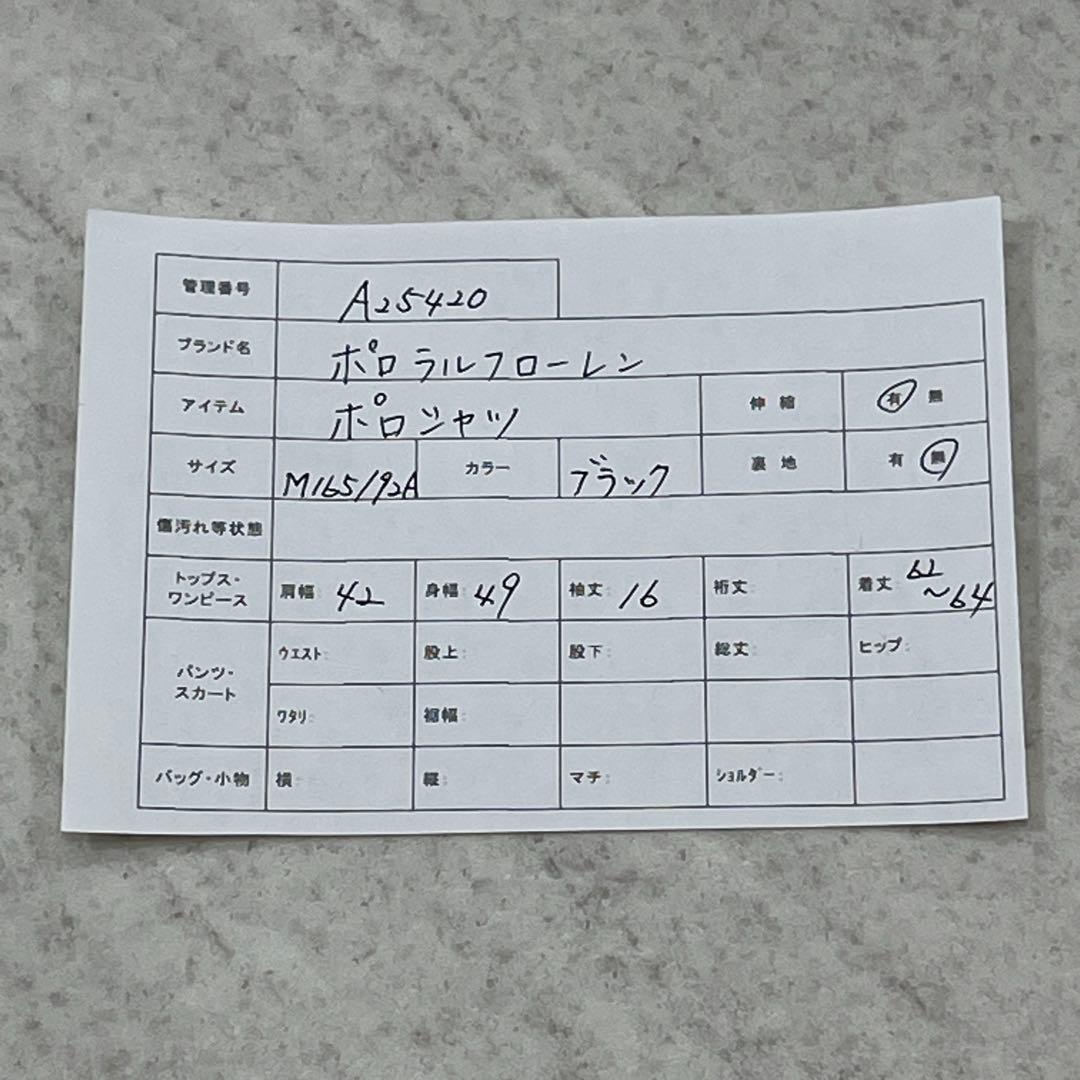 管理番号 A25420
ブランド名 ポロラルフローレン
アイテム ポロシャツ 伸縮 有 無
サイズ M165/92A カラー ブラック 裏地 有 無
傷汚れ等状態
トップス・ワンピース 肩幅: 42 身幅: 49 袖丈: 16 裄丈: 着丈: 62〜64
パンツ・スカート ウエスト: 股上: 股下: 総丈: ヒップ:
ワタリ: 裾幅:
バッグ・小物 横: 縦: マチ: ショルダー: